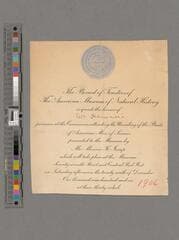 The Board of Trustees of
The American Museum of Natural History
request the honor of
presence at the Ceremonies attending the Unveiling of the Busts
of American Men of Science
presented to the Museum by
Mr. Morris K. Jesup
which will take place at the Museum
Seventy-seventh Street and Central Park West
on Saturday afternoon the twenty-ninth of December
One thousand nine hundred and six
at three thirty o'clock
1906